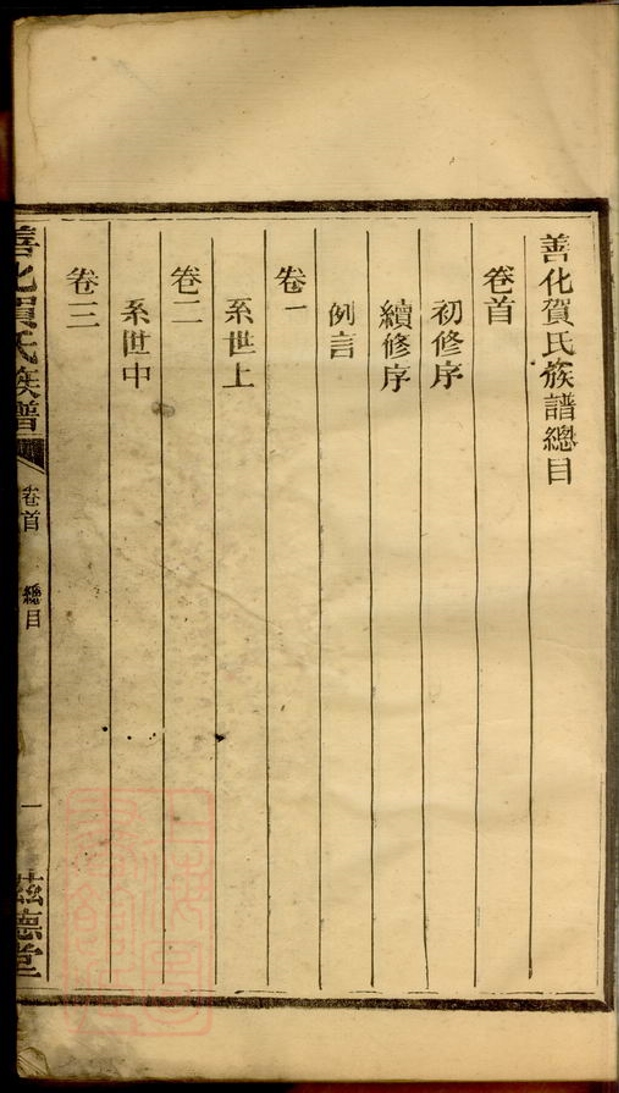 善化賀氏族譜總目
卷首
初修序
續修序
例言
卷一
系世上
卷二
系世中
卷三
善化賀氏族譜 卷首 總目 一 茲德堂